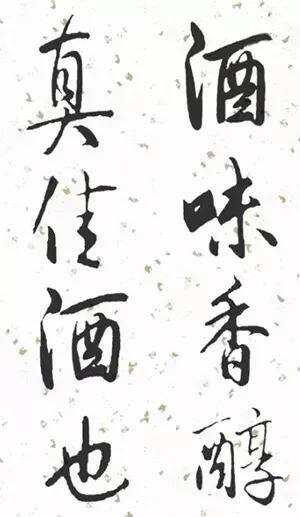 酒味香醇
真佳酒也